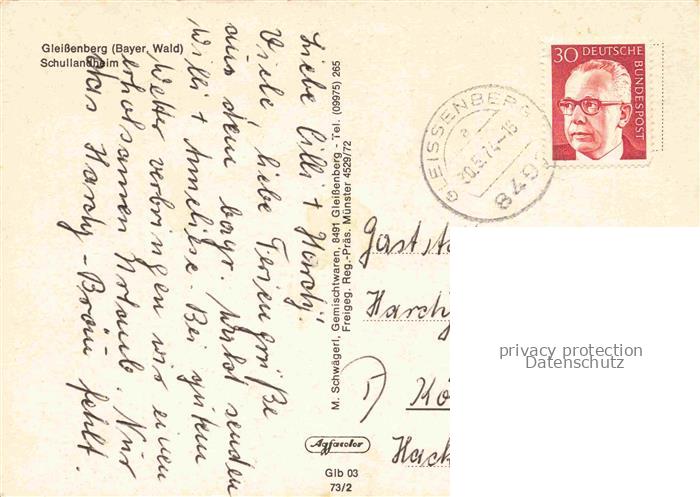 Gleißenberg (Bayer. Wald)
Schullandheim
Liebe Cilli + Hardy!
Viele, liebe Feriengrüße
aus dem bayr. Wald senden
Willi + Anneliese. Bei gutem
Wetter verbringen wir einen
erholsamen Urlaub. Nur
das Hardy-Bräu fehlt.
M. Schwägerl, Gemischtwaren, 8491 Gleißenberg - Tel. (09975) 265
Freigeg. Reg.-Präs. Münster 4529/72
Agfacolor
Glb 03
73/2
GLEISSENBERG
a
8491
30 DEUTSCHE
BUNDESPOST
Hardy
Kö
Hack
privacy protection
Datenschutz